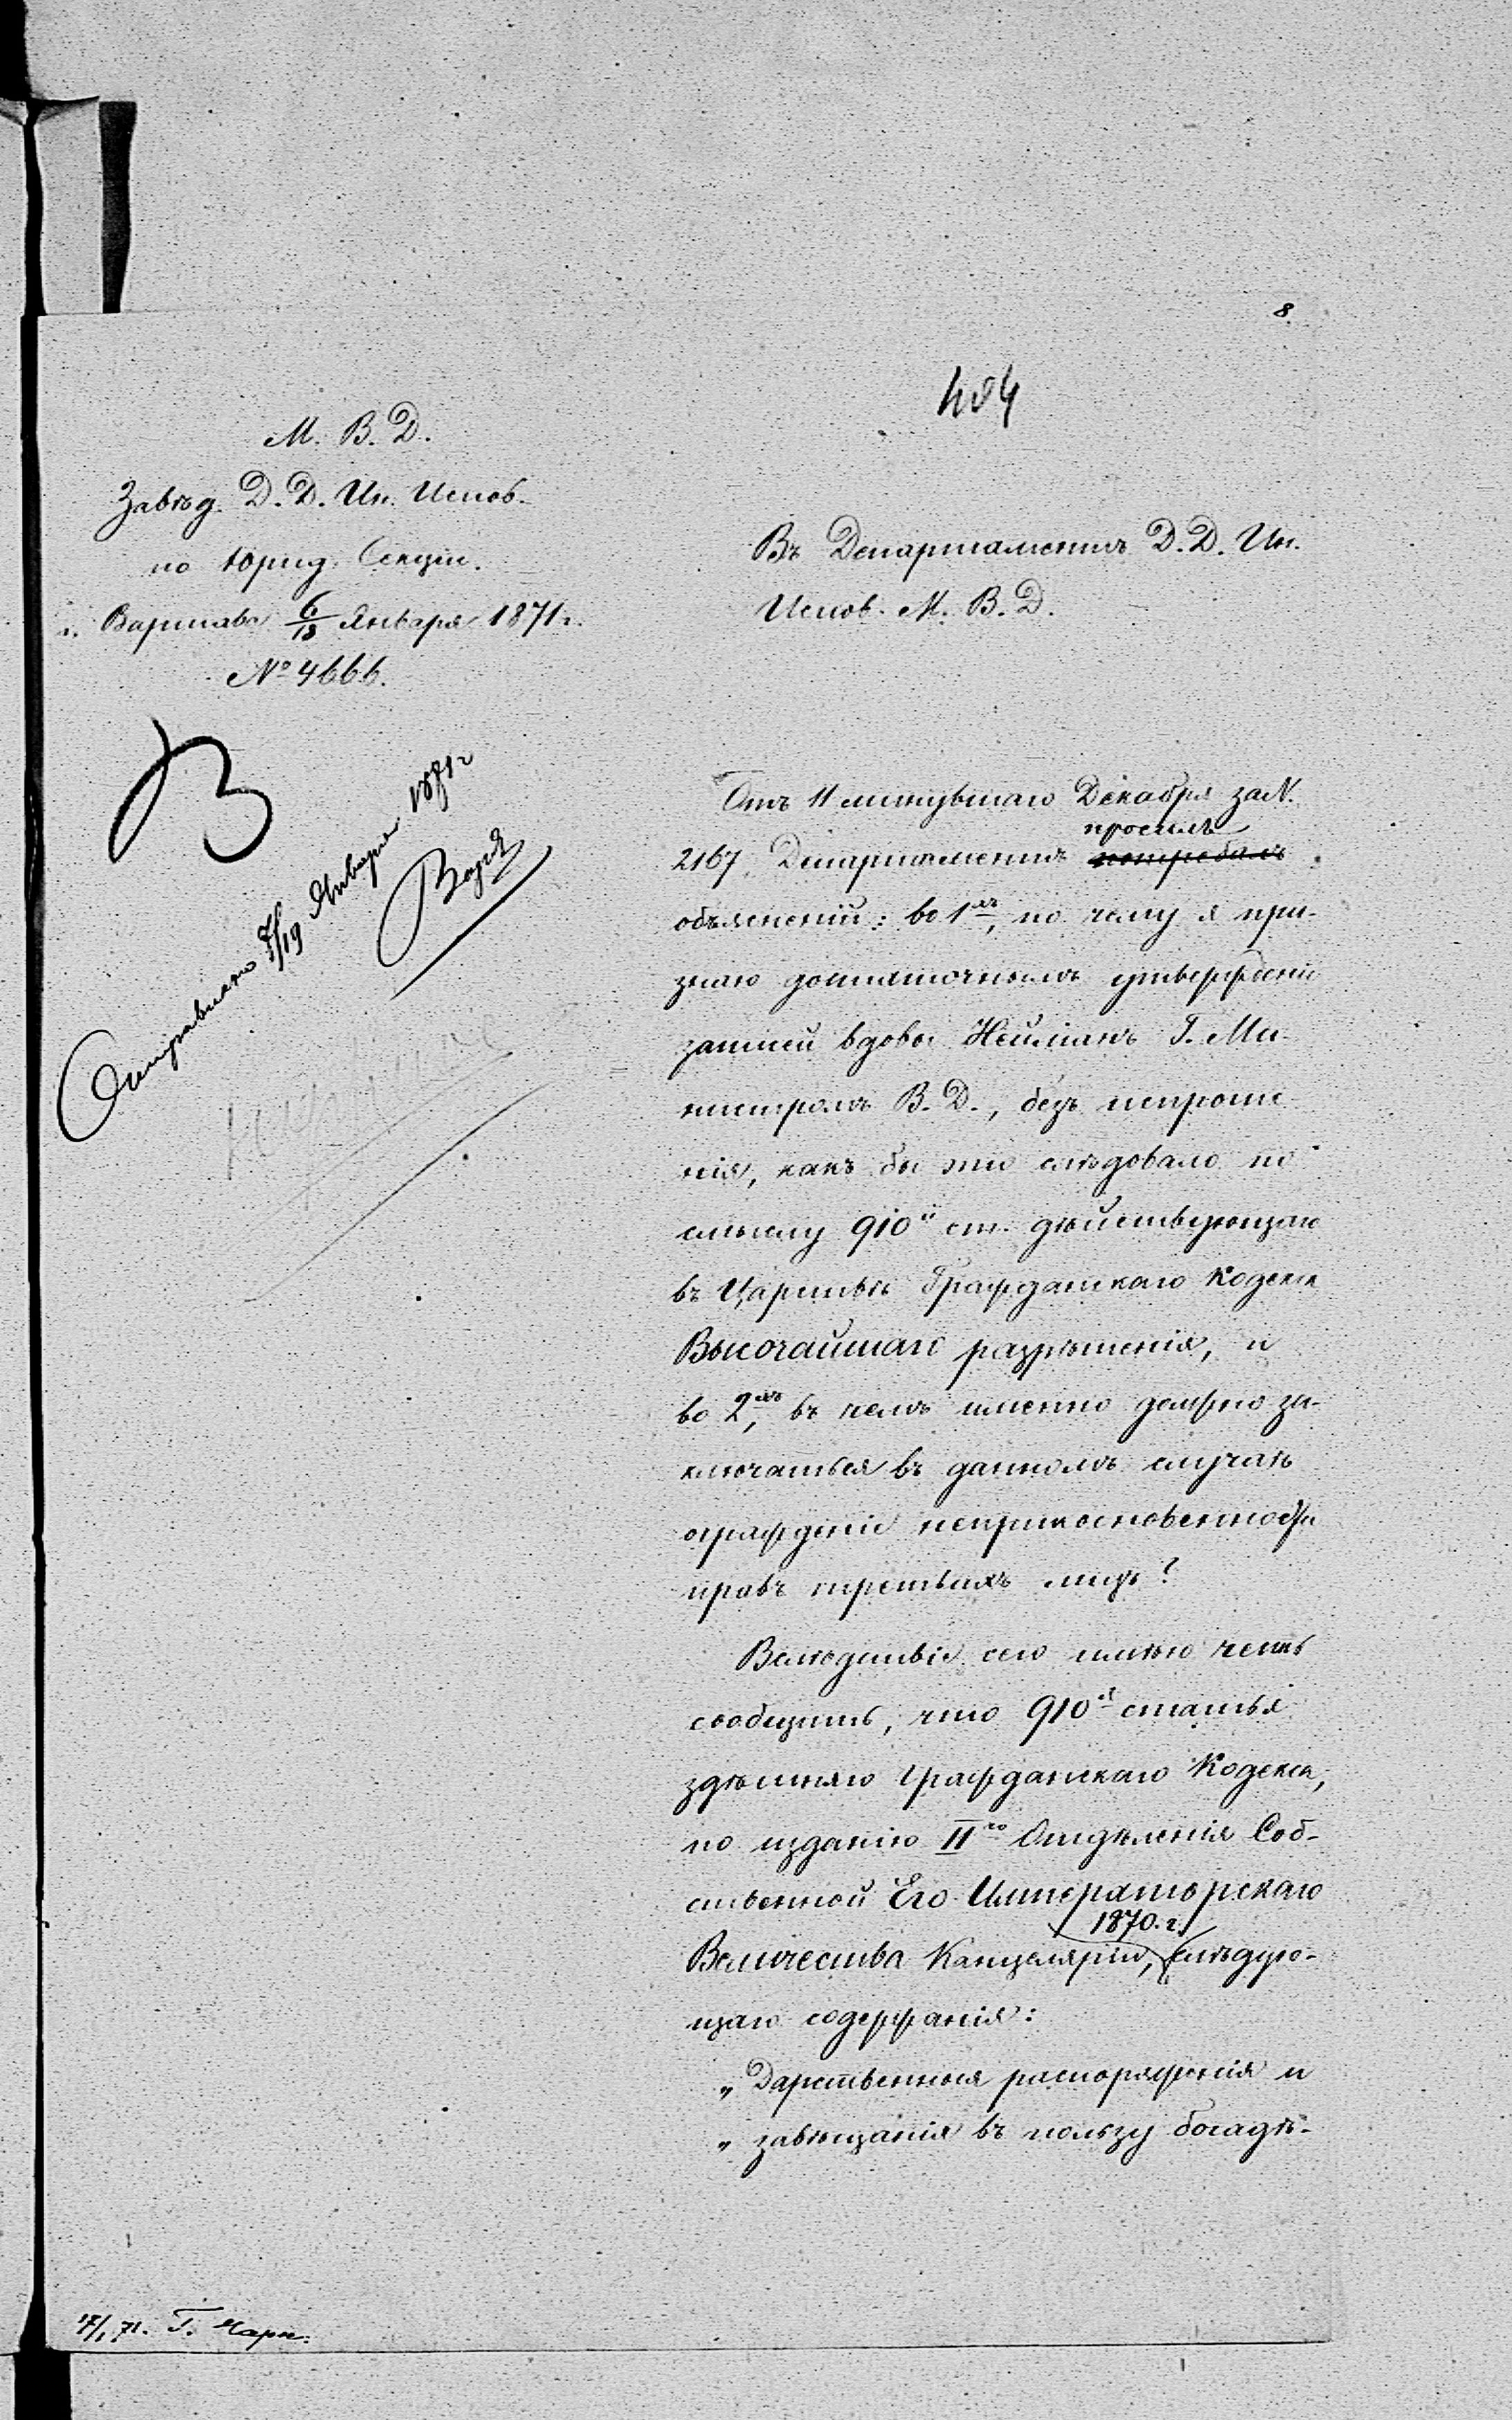 8.
404
М. В. Д.
Завѣд. Д. Д. Ин. Испов.
по Юрид. Секціи.
г. Варшава 6/18 Января 1871 г.
№ 4666.
Въ Департаментъ Д. Д. Ин.
Испов. М. В. Д.
Отправлено 7/19 Января 1871 г
Отъ 11 минувшаго Декабря за N.
просилъ
2167, Департаментъ потребалъ
объясненій: во 1хъ, по чему я при-
знаю достаточнымъ утвержденіе
записей вдовы Нейманъ Г. Ми-
нистромъ В. Д., безъ испроше-
нія, какъ бы это слѣдовало по
смыслу 910й ст. дѣйствующаго
въ Царствѣ Гражданскаго Кодекса
Высочайшаго разрѣшенія, и
во 2хъ, въ чемъ именно должно за-
ключаться въ данномъ случаѣ
огражденіе неприкосновенности
правъ третьихъ лицъ?
Вслѣдствіе сего имѣю честь
сообщить, что 910я статья
здѣшняго Гражданскаго Кодекса,
по изданію IIго Отдѣленія Соб-
ственной Его Императорскаго
1870. г.
Величества Канцеляріи, слѣдую-
щаго содержанія:
„ Дарственныя распоряженія и
„ завѣщанія въ пользу богадѣ-
17/1 71. Г.